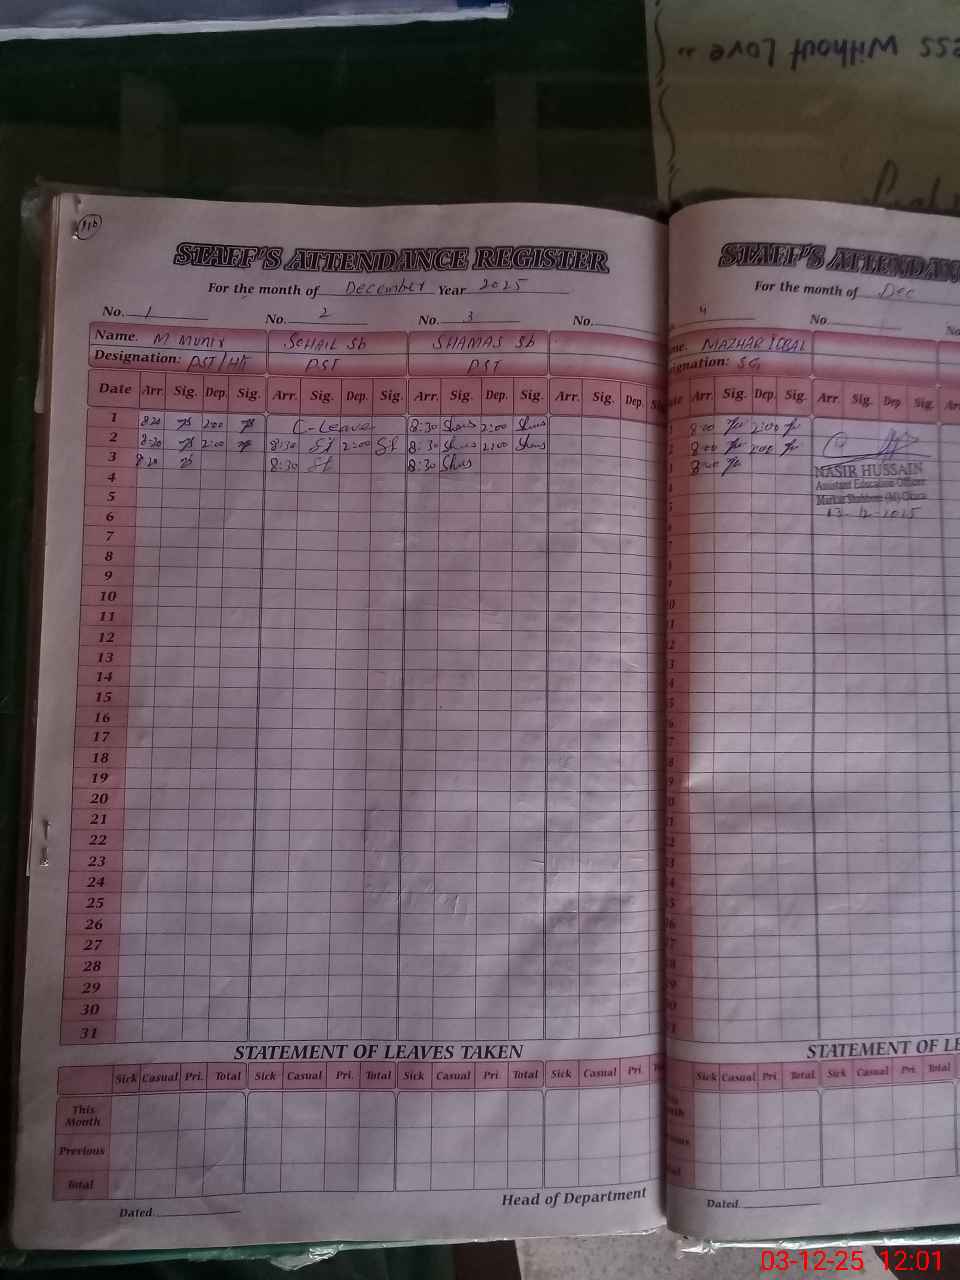 ess without Love "
116
STAFF'S ATTENDANCE REGISTER
For the month of December Year 2025
No. 1 No. 2 No. 3 No.
Name. M MUNIR SOHAIL Sb SHAMAS Sb
Designation: PST/HT PST PST
Date Arr. Sig. Dep. Sig. Arr. Sig. Dep. Sig. Arr. Sig. Dep. Sig. Arr. Sig. Dep. Sig
1 8:20 2:00 C-Leave 8:30 Shams 2:00 Shams
2 8:20 2:00 8:30 2:00 8:30 Shams 2:00 Shams
3 8:20 8:30 8:30 Shams
4
5
6
7
8
9
10
11
12
13
14
15
16
17
18
19
20
21
22
23
24
25
26
27
28
29
30
31
STATEMENT OF LEAVES TAKEN
Sick Casual Pri. Total Sick Casual Pri. Total Sick Casual Pri. Total Sick Casual Pri.
This
Month
Previous
Total
Head of Department
Dated
STAFF'S ATTENDAN
For the month of Dec
4 No. No
me. MAZHAR IQBAL
signation:
ate Arr. Sig. Dep. Sig. Arr. Sig. Dep Sig. Arr.
8:00 2:00
8:00 2:00
8:00
NASIR HUSSAIN
Assistant Education Officer
Markaz Shahbore (M) Okara
03-12-2025
STATEMENT OF LE
Sick Casual Pri. Total Sick Casual Pri. Total
Dated
03-12-25 12:01